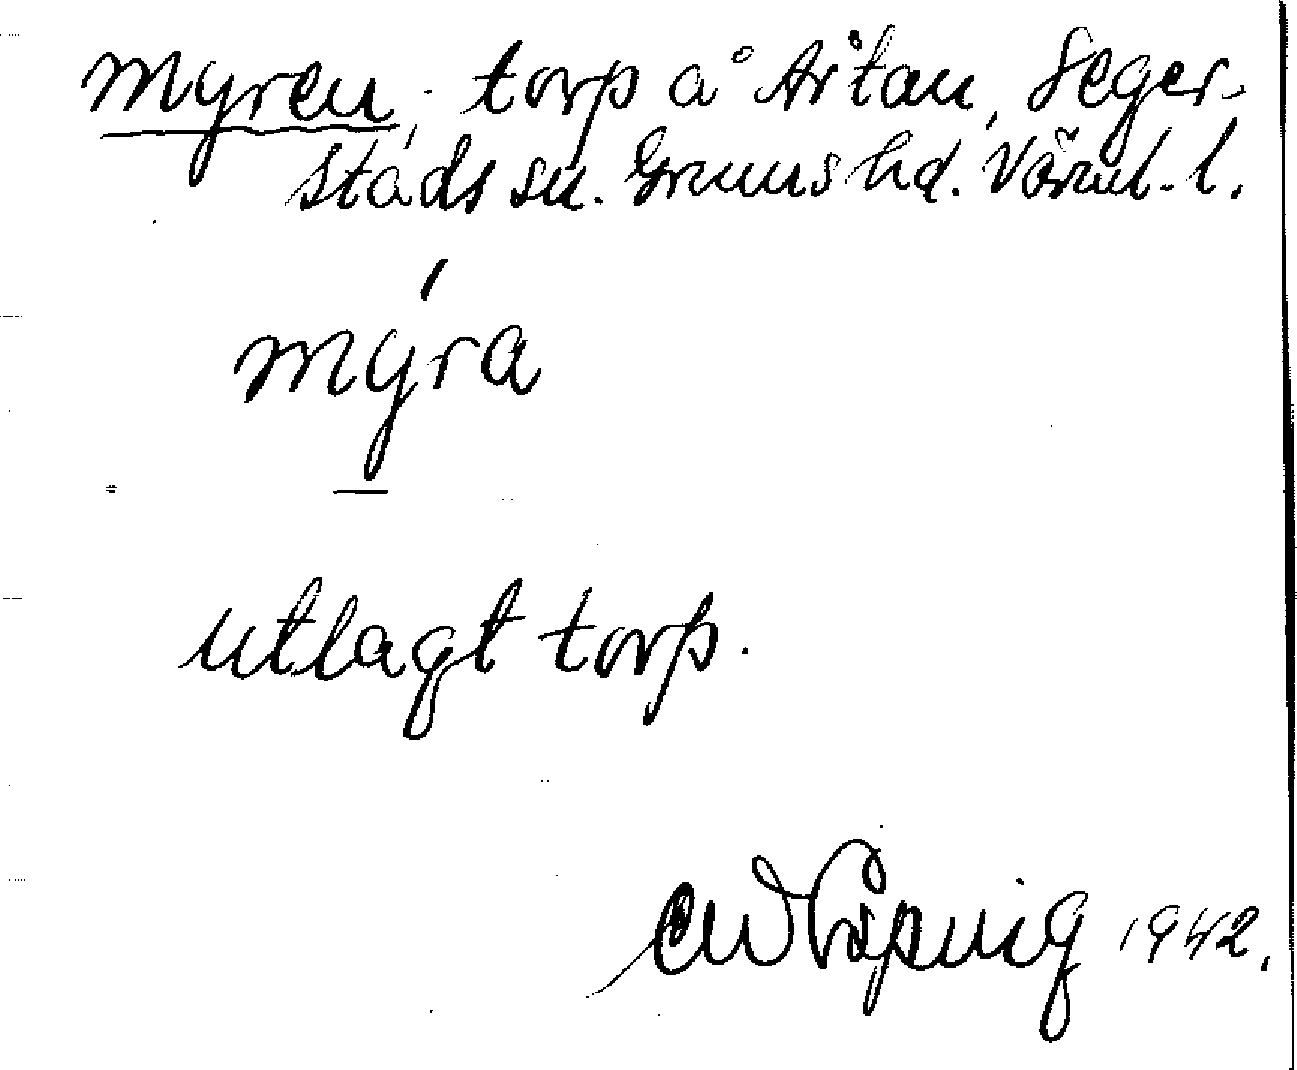 Myren, torp å Årtan, Seger-
stads sn. Grums hd. Värml. l.
mýra
utlagt torp.
1942.